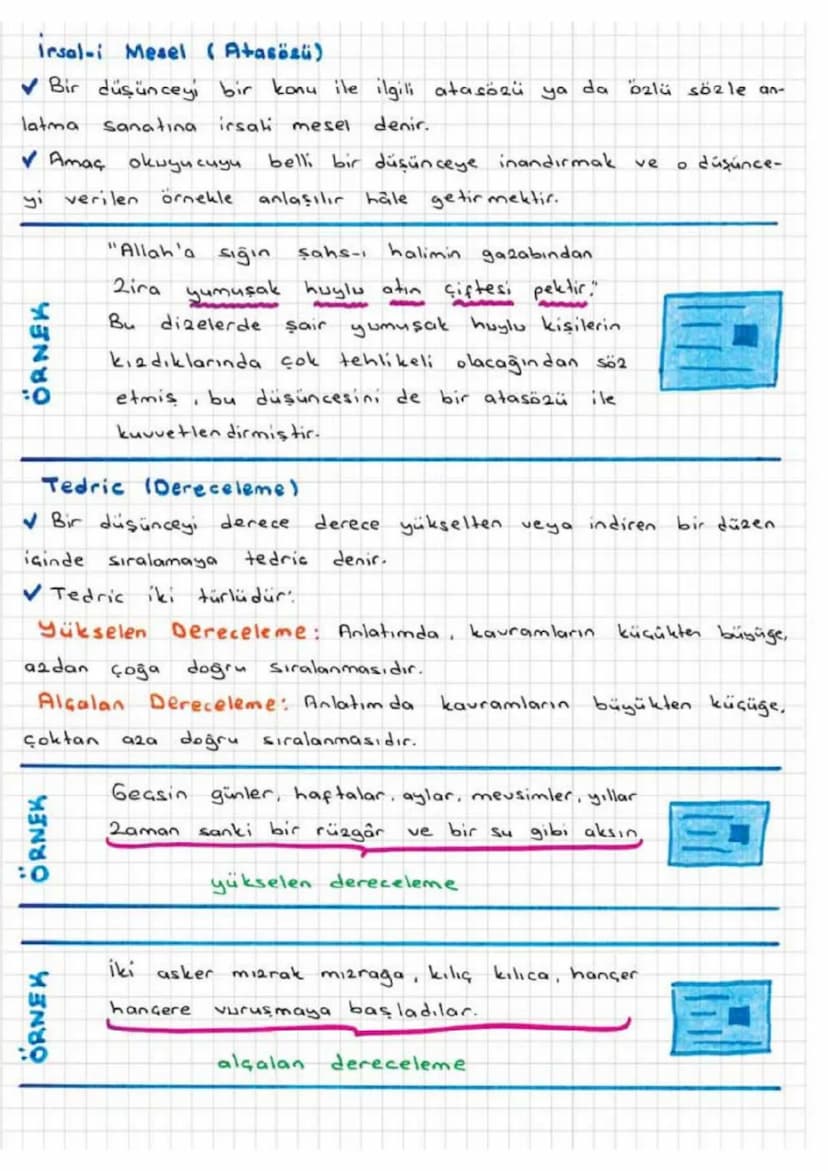 İrsal-i Mesel (Atasözü)
✓ Bir düşünceyi bir konu ile ilgili atasözü ya da özlü sözle an-
latma sanatına irsali mesel denir.
✓ Amaç okuyucuyu belli bir düşünceye inandırmak ve o düşünce-
yi verilen örnekle anlaşılır hâle getirmektir.
ÖRNEK
"Allah'a sığın şahs-ı halimin gazabından
Zira yumuşak huylu atın çiftesi pektir."
Bu dizelerde şair yumuşak huylu kişilerin
kızdıklarında çok tehlikeli olacağından söz
etmiş, bu düşüncesini de bir atasözü ile
kuvvetlendirmiştir.
Tedric (Dereceleme)
✓ Bir düşünceyi derece derece yükselten veya indiren bir düzen
içinde sıralamaya tedric denir.
✓ Tedric iki türlüdür:
Yükselen Dereceleme: Anlatımda, kavramların küçükten büyüğe,
azdan çoğa doğru sıralanmasıdır.
Alçalan Dereceleme: Anlatımda kavramların büyükten küçüğe,
çoktan aza doğru sıralanmasıdır.
ÖRNEK
Geçsin günler, haftalar, aylar, mevsimler, yıllar
Zaman sanki bir rüzgâr ve bir su gibi aksın
yükselen dereceleme
ÖRNEK
İki asker mızrak mızrağa, kılıç kılıca, hançer
hançere vuruşmaya başladılar.
alçalan dereceleme